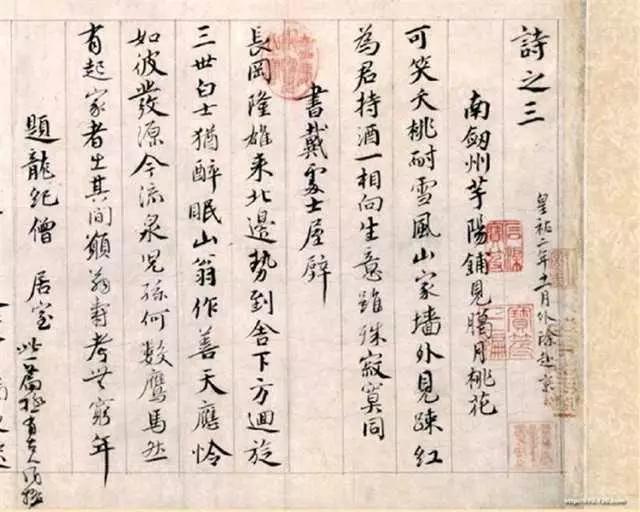 詩之三
皇祐二年十一月外除赴京
南劔州芋陽鋪見臘月桃花
可笑夭桃耐雪風山家墻外見踈紅
為君持酒一相向生意雖殊寂寞同
書戴處士屋壁
長岡隆雄來北邊勢到舍下方迴旋
三世白士猶醉眠山翁作善天應憐
如彼發源今流泉兒孫何數鷹馬然
有起家者出其間願翁壽考無窮年
題龍紀僧居室
此一篇極有古人風格